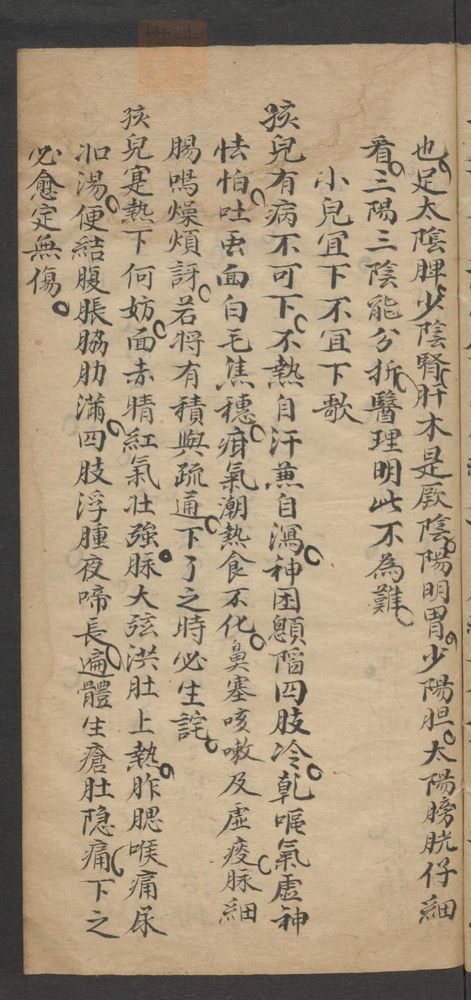 也足太陰脾少陰腎肝木是厥陰陽明胃少陽胆太陽膀胱仔細
看三陽三陰能分折醫理明此不為難
小兒宜下不宜下歌
孩兒有病不可下不熱自汗兼自瀉神困顖陷四肢冷乾嘔氣虛神
怯怕吐虫面白毛焦穗疳氣潮熱食不化鼻塞咳嗽及虛痰脉細
腸鳴燥煩訝若將有積與疏通下了之時必生詫
孩兒寔熱下何妨面赤睛紅氣壯強脉大弦洪肚上熱胙腮喉痛尿
如湯便結腹脹脇肋滿四肢浮腫夜啼長遍體生瘡肚隐痛下之
必愈定無傷